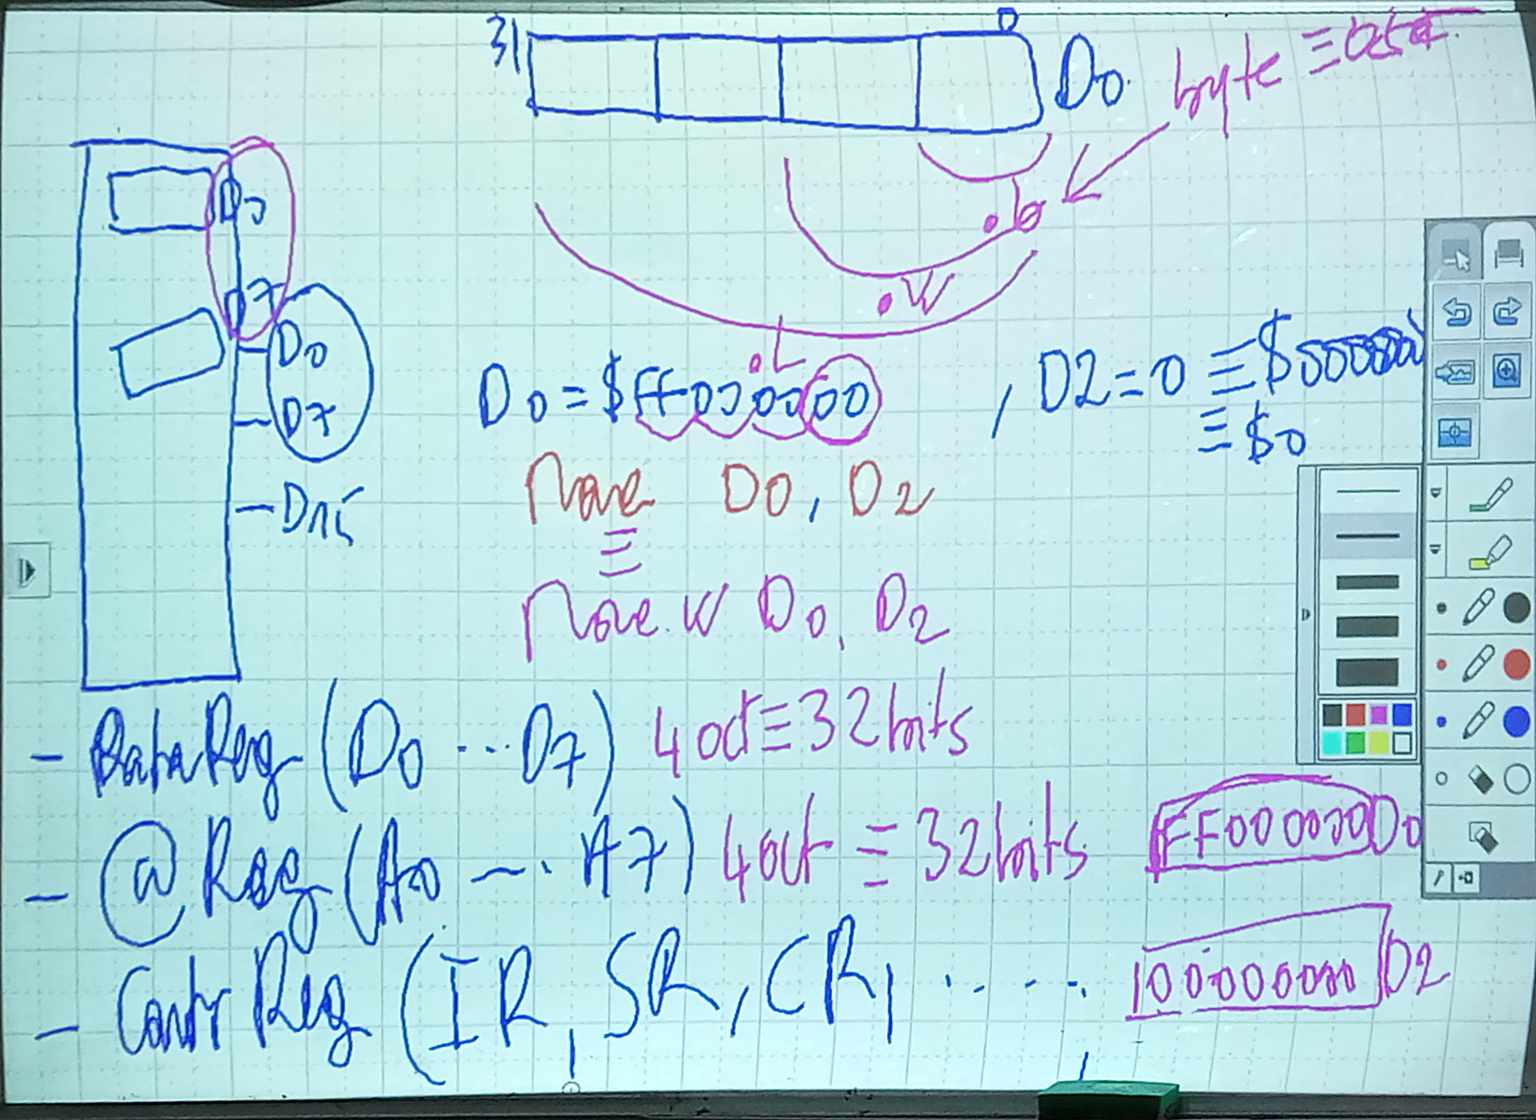 31 0 D0
byte ≡ oct
.b
.W
.L
D0
D7
D0
D7
D15
D0 = $FF000000 , D2 = 0 ≡ $00000000
≡ $0
Move D0, D2
≡
Move.W D0, D2
- Data Reg (D0 ... D7) 4 oct ≡ 32 bits
- @ Reg (A0 ---. A7) 4 oct ≡ 32 bits
FF000000 D0
- Contr Reg (IR, SR, CR, .....
00000000 D2